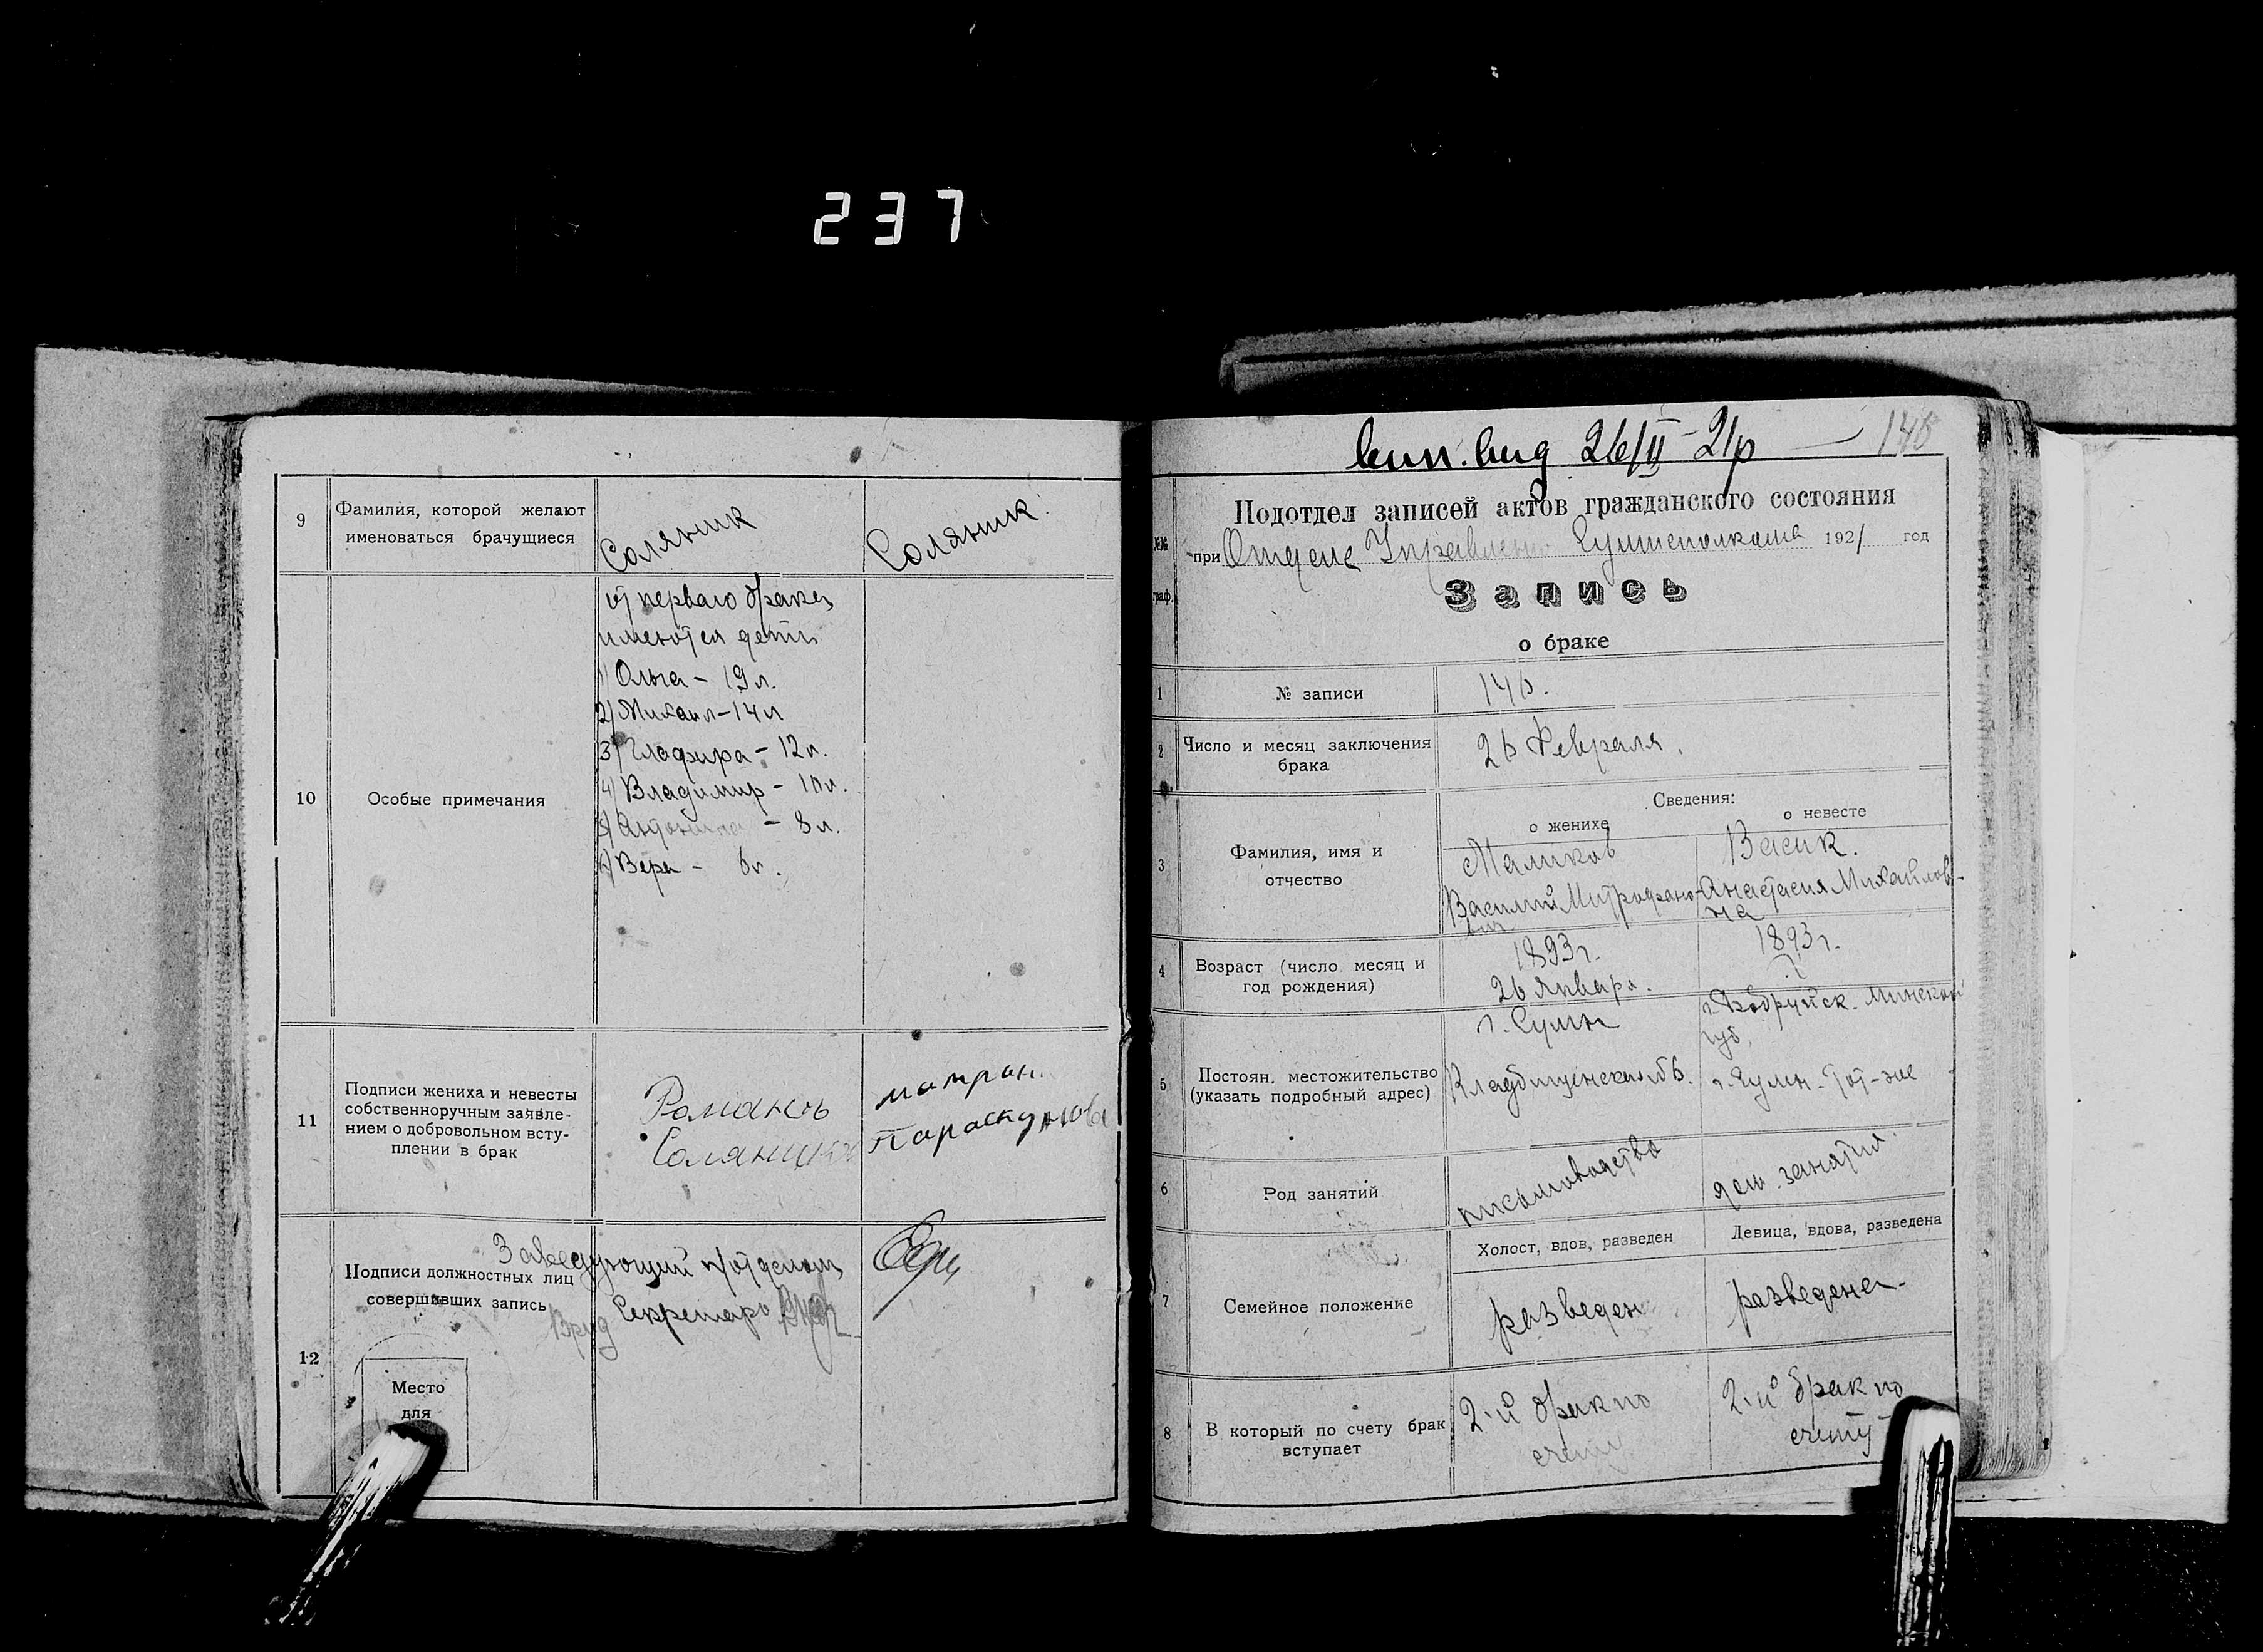 237
9
Фамилия, которой желают
именоваться брачущиеся
Соляник
Соляник.
10
Особые примечания
от перваго брака
имеются дети
1) Ольга - 19 л.
2) Михаил - 14 л
3) Глафира - 12 л.
4) Владимир - 10 л.
5) Антонина - 8 л.
6) Вера - 6 л.
11
Подписи жениха и невесты
собственноручным заявле-
нием о добровольном всту-
плении в брак
Романъ
Соляникъ
матрон.
Параскунова
12
Подписи должностных лиц
совершивших запись
Заведующий п/отделом
Врид Секретаря
Место
для
26/II-21р
146
Подотдел записей актов гражданского состояния
при Отделе Управления 1921 год
№№
граф.
Запись
о браке
1
№ записи
146.
2
Число и месяц заключения
брака
26 Февраля.
Сведения:
о женихе
о невесте
3
Фамилия, имя и
отчество
Маликов
Василий Митрофано-
вич
Васик.
Анастасия Михайлов-
на
4
Возраст (число месяц и
год рождения)
1893 г.
26 Января.
1893 г.
5
Постоян. местожительство
(указать подробный адрес)
г. Сумы
Кладбищенская № 6.
г. Бобруйск. Минской
губ.
г. Сумы
6
Род занятий
письмоводство
дом. занятия.
7
Семейное положение
Холост, вдов, разведен
Девица, вдова, разведена
разведен
разведена
8
В который по счету брак
вступает
2-й брак по
счету
2-й брак по
счету